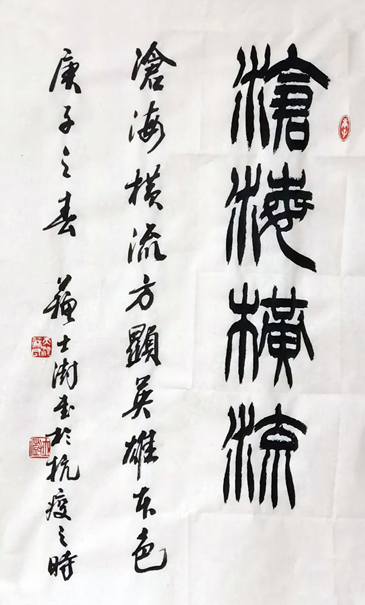 滄海橫流
滄海橫流方顯英雄本色
庚子之春 蘇士澍書於抗疫之時